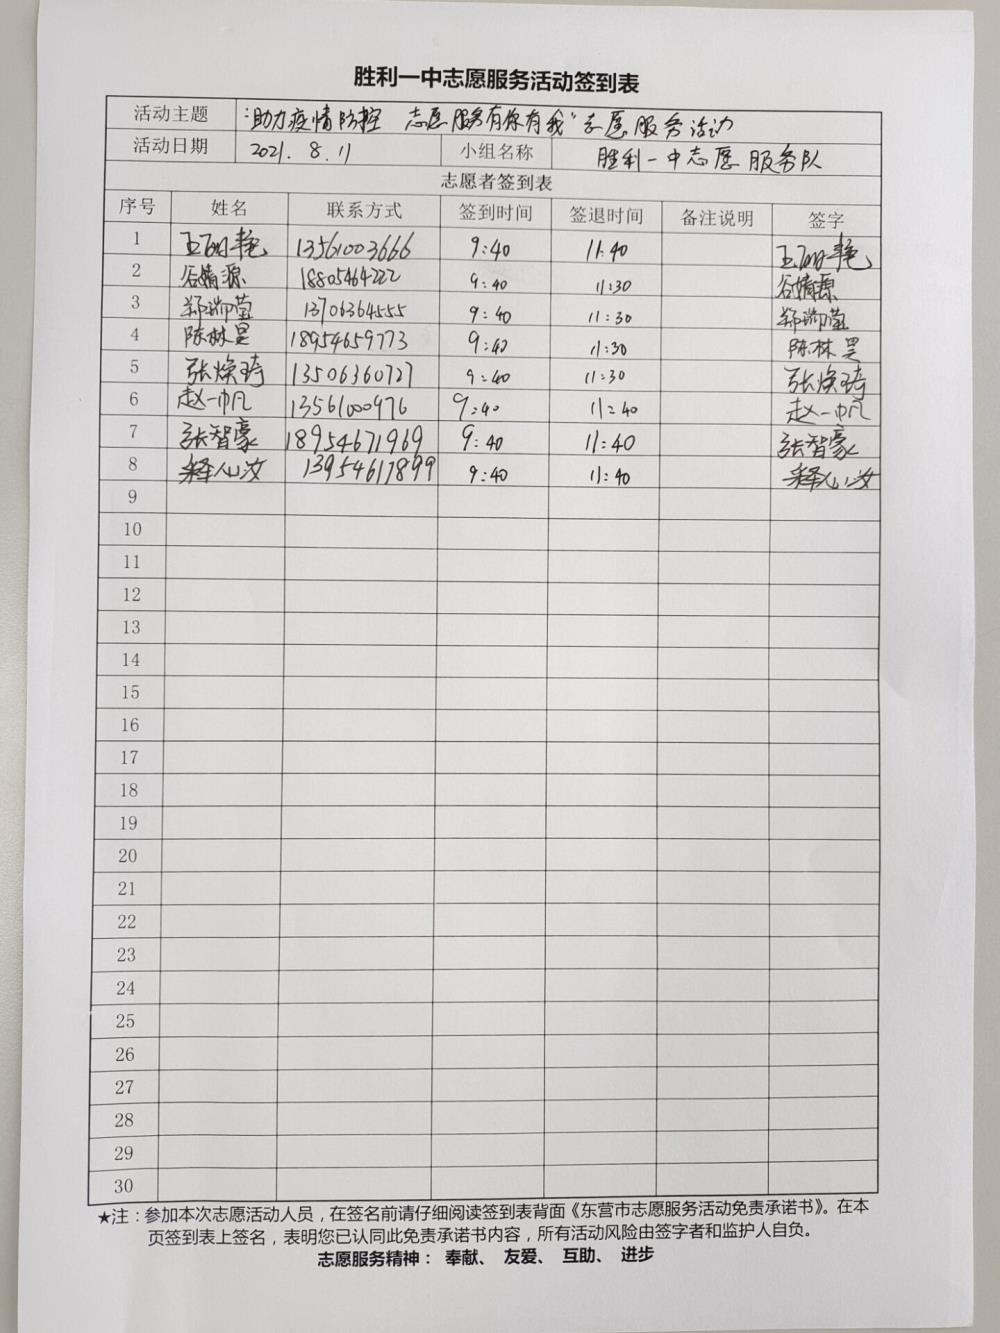 胜利一中志愿服务活动签到表
活动主题 "助力疫情防控 志愿服务有你有我"志愿服务活动
活动日期 2021.8.11 小组名称 胜利一中志愿服务队
志愿者签到表
序号 姓名 联系方式 签到时间 签退时间 备注说明 签字
1 王丽艳 13561003666 9:40 11:40 王丽艳
2 谷婧源 18805464222 9:40 11:30 谷婧源
3 郑瑞莹 13706364555 9:40 11:30 郑瑞莹
4 陈林昊 18954659773 9:40 11:30 陈林昊
5 张焕琦 13506360727 9:40 11:30 张焕琦
6 赵一帆 13561000976 9:40 11:40 赵一帆
7 张智豪 18954671969 9:40 11:40 张智豪
8 13954617899 9:40 11:40
9
10
11
12
13
14
15
16
17
18
19
20
21
22
23
24
25
26
27
28
29
30
★注：参加本次志愿活动人员，在签名前请仔细阅读签到表背面《东营市志愿服务活动免责承诺书》。在本
页签到表上签名，表明您已认同此免责承诺书内容，所有活动风险由签字者和监护人自负。
志愿服务精神： 奉献、 友爱、 互助、 进步